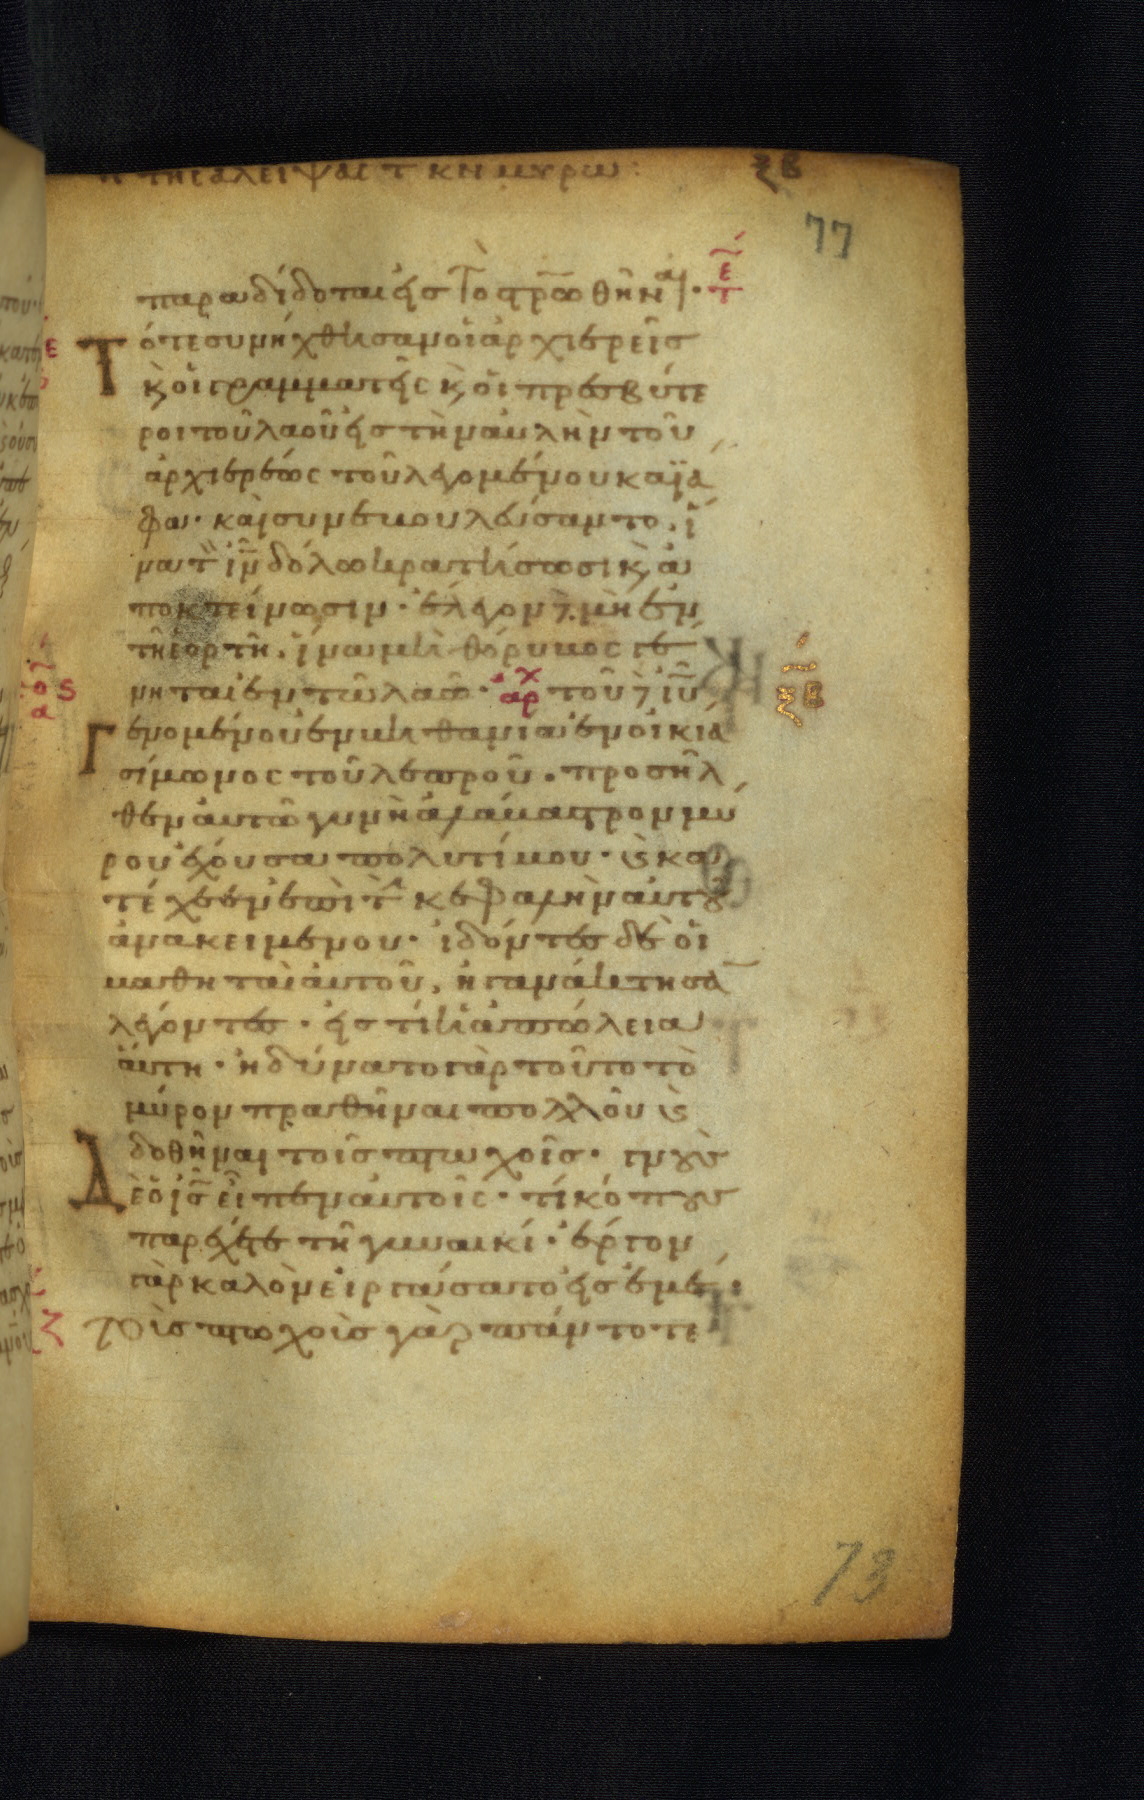 τῆς ἀλειψάσ τ κν μύρω: ξβ
77
παραδίδοται εἰς τὸ στρωθῆναι· τε
Τότε συνήχθησαν οἱ ἀρχιερεῖς
κ οἱ γραμματεῖς κ οἱ πρεσβύτε
ροι τοῦ λαοῦ εἰς τὴν αὐλὴν τοῦ
ἀρχιερέως τοῦ λεγομένου καϊά
φα· καὶ συνεβουλεύσαντο, ἵ
να τ ιν δόλω κρατήσωσι κ ἀ
ποκτείνωσιν· ἔλεγον δ μὴ ἐν
τῆ ἑορτῆ, ἵνα μὴ θόρυβος γέ
νηται ἐν τῶ λαῶ· αρχ τοῦ δ ιυ
ξβ
ς
Γενομένου ἐν βηθανία ἐν οἰκία
σίμωνος τοῦ λεπροῦ· προσῆλ
θεν αὐτῶ γυνὴ ἀλάβαστρον μύ
ρου ἔχουσα πολυτίμου· κ κα
τέχεεν ἐπὶ τ κεφαλὴν αὐτοῦ
ἀνακειμένου· ἰδόντες δὲ οἱ
μαθηταὶ αὐτοῦ, ἠγανάκτησα
λέγοντες· εἰς τί ἡ ἀπώλεια
αὕτη· ἠδύνατο γὰρ τοῦτο τὸ
μύρον πραθῆναι πολλοῦ κ
δοθῆναι τοῖς πτωχοῖς· γνοὺς
Δὲ ὁ ις εἶπεν αὐτοῖς· τί κόπους
παρέχετε τῆ γυναικί· ἔργον
γὰρ καλὸν εἰργάσατο εἰς ἐμέ:
ζ
τοὺς πτωχοὺς γὰρ πάντοτε
73